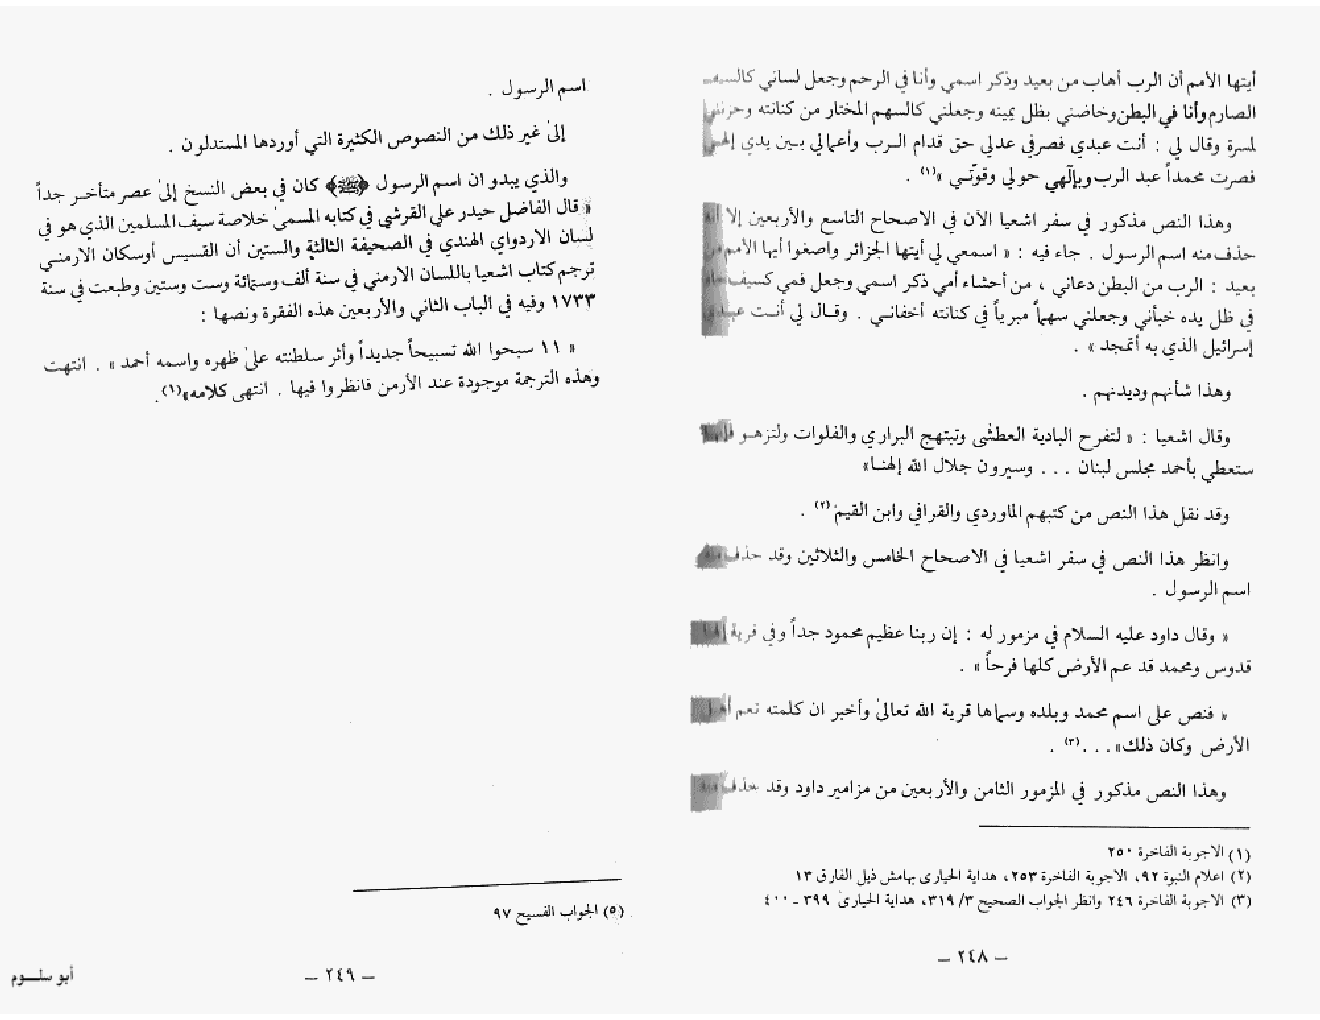 أيتها الأمم أن الرب أهاب من بعيد وذكر اسمي وأنا في الرحم وجعل لساني كالسيف
الصارم وأنا في البطن وخاضني بظل يمينه وجعلني كالسهم المختار من كنانته وحزنني
لمسرة وقال لي : أنت عبدي فصرفي عدلي حق قدام الـرب وأعمالي بـين يدي إلهـي
فصرت محمداً عبد الرب وبإلٓهي حولي وقوتي »(١) .
وهذا النص مذكور في سفر اشعيا الآن في الاصحاح التاسع والأربعين إلا انه
حذف منه اسم الرسول . جاء فيه : « اسمعي لي أيتها الجزائر واصغوا أيها الأمم من
بعيد : الرب من البطن دعاني ، من أحشاء أمي ذكر اسمي وجعل فمي كسيف حاد
في ظل يده خبأني وجعلني سهماً مبرياً في كنانته أخفاني . وقال لي أنت عبدي
إسرائيل الذي به أتمجد » .
وهذا شأنهم وديدنهم .
وقال اشعيا : « لتفرح البادية العطشى وتبتهج البراري والفلوات ولتزهـو
ستعطي بأحمد مجلس لبنان . . . وسيرون جلال الله إلهنا»
وقد نقل هذا النص من كتبهم الماوردي والقرافي وابن القيم(٢) .
وانظر هذا النص في سفر اشعيا في الاصحاح الخامس والثلاثين وقد حذف منه
اسم الرسول .
« وقال داود عليه السلام في مزمور له : إن ربنا عظيم محمود جداً وفي قرية إلهنا
قدوس ومحمد قد عم الأرض كلها فرحاً » .
« فنص على اسم محمد وبلده وسماها قرية الله تعالى وأخبر ان كلمته تعم أهل
الأرض وكان ذلك» . . .(٣) .
وهذا النص مذكور في المزمور الثامن والأربعين من مزامير داود وقد حذف منه
(١) الاجوبة الفاخرة ٢٥٠
(٢) اعلام النبوة ٩٢، الاجوبة الفاخرة ٢٥٣، هداية الحيارى بهامش ذيل الفارق ١٣
(٣) الاجوبة الفاخرة ٢٤٦ وانظر الجواب الصحيح ٣/ ٣١٩، هداية الحيارى ٣٩٩ ـ ٤٠٠
– ٢٤٨ –
اسم الرسول .
إلى غير ذلك من النصوص الكثيرة التي أوردها المستدلون .
والذي يبدو ان اسم الرسول ﴿ﷺ﴾ كان في بعض النسخ إلى عصر متأخر جداً
« قال الفاضل حيدر علي القرشي في كتابه المسمى خلاصة سيف المسلمين الذي هو في
لسان الاردواي الهندي في الصحيفة الثالثة والستين أن القسيس أوسكان الارمني
ترجم كتاب اشعيا باللسان الارمني في سنة ألف وستمائة وست وستين وطبعت في سنة
١٧٣٣ وفيه في الباب الثاني والأربعين هذه الفقرة ونصها :
« ١١ سبحوا الله تسبيحاً جديداً وأثر سلطنته على ظهره واسمه أحمد » . انتهت
وهذه الترجمة موجودة عند الأرمن فانظروا فيها . انتهى كلامه»(٦) .
(٥) الجواب الفسيح ٩٧
– ٢٤٩ –
أبو سلـوم